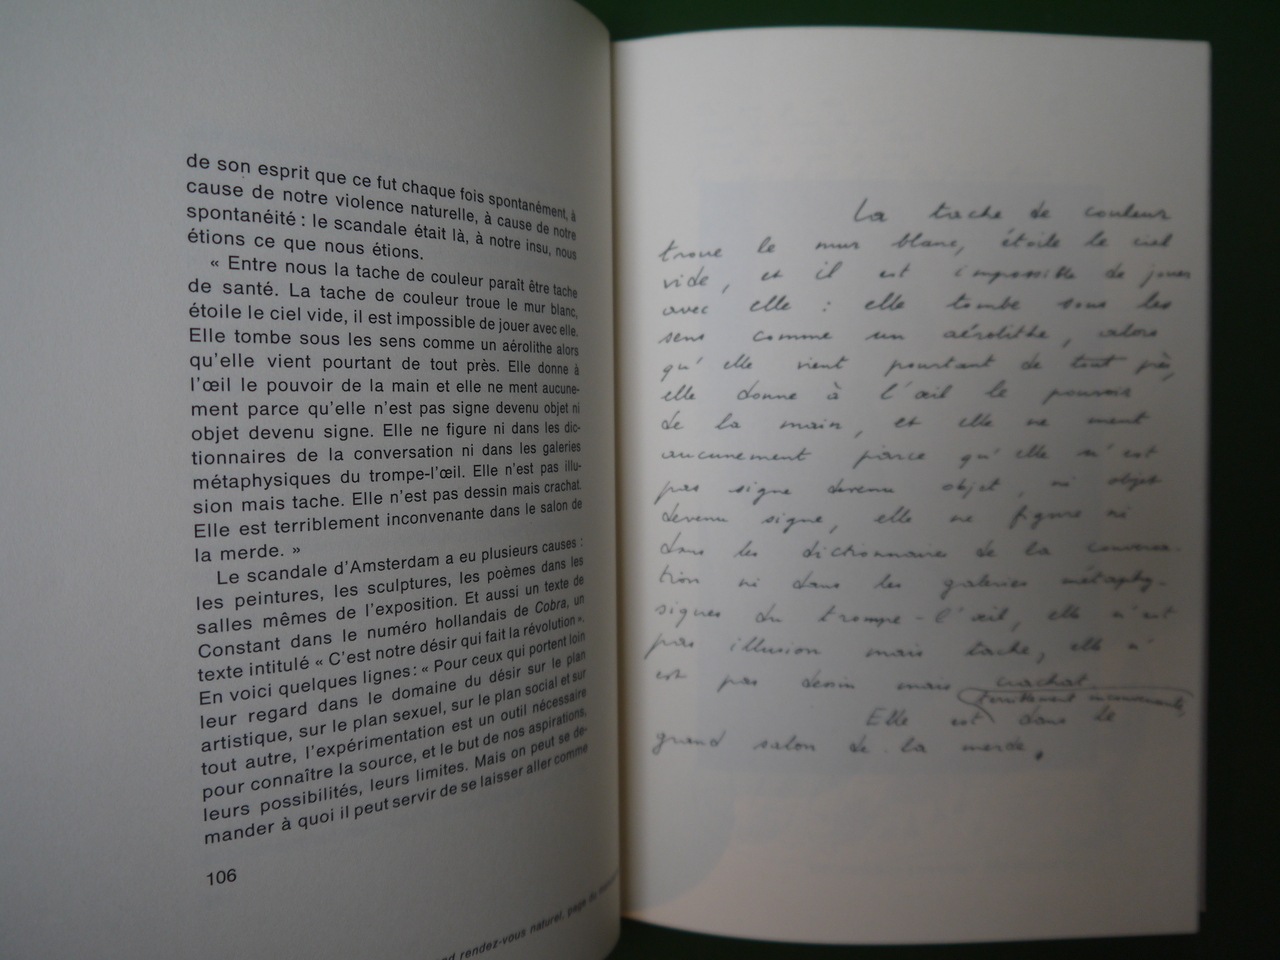 de son esprit que ce fut chaque fois spontanément, à
cause de notre violence naturelle, à cause de notre
spontanéité : le scandale était là, à notre insu, nous
étions ce que nous étions.
« Entre nous la tache de couleur paraît être tache
de santé. La tache de couleur troue le mur blanc,
étoile le ciel vide, il est impossible de jouer avec elle.
Elle tombe sous les sens comme un aérolithe alors
qu'elle vient pourtant de tout près. Elle donne à
l'œil le pouvoir de la main et elle ne ment aucune-
ment parce qu'elle n'est pas signe devenu objet ni
objet devenu signe. Elle ne figure ni dans les dic-
tionnaires de la conversation ni dans les galeries
métaphysiques du trompe-l'œil. Elle n'est pas illu-
sion mais tache. Elle n'est pas dessin mais crachat.
Elle est terriblement inconvenante dans le salon de
la merde. »
Le scandale d'Amsterdam a eu plusieurs causes :
les peintures, les sculptures, les poèmes dans les
salles mêmes de l'exposition. Et aussi un texte de
Constant dans le numéro hollandais de Cobra, un
texte intitulé « C'est notre désir qui fait la révolution ».
En voici quelques lignes : « Pour ceux qui portent loin
leur regard dans le domaine du désir sur le plan
artistique, sur le plan sexuel, sur le plan social et sur
tout autre, l'expérimentation est un outil nécessaire
pour connaître la source, et le but de nos aspirations,
leurs possibilités, leurs limites. Mais on peut se de-
mander à quoi il peut servir de se laisser aller comme
106
rendez-vous naturel, page du
La tache de couleur
troue le mur blanc, étoile le ciel
vide, et il est impossible de jouer
avec elle : elle tombe sous les
sens comme un aérolithe, alors
qu'elle vient pourtant de tout près,
elle donne à l'œil le pouvoir
de la main, et elle ne ment
aucunement parce qu'elle n'est
pas signe devenu objet, ni objet
devenu signe, elle ne figure ni
dans les dictionnaires de la conversa-
tion ni dans les galeries métaphy-
siques du trompe-l'œil, elle n'est
pas illusion mais tache, elle n'
est pas dessin mais crachat.
terriblement inconvenante
Elle est dans le
grand salon de la merde.